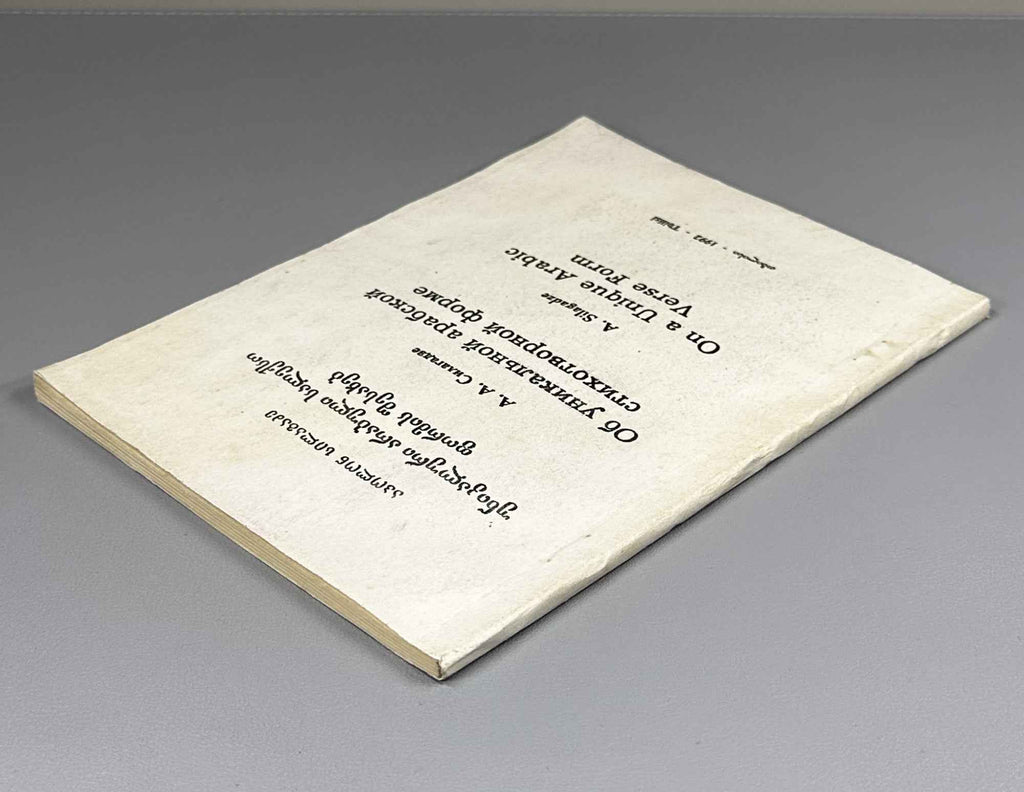 აპოლონ სილაგაძე
უნიკალური არაბული სალექსო
ფორმის შესახებ
А. А. Силагадзе
Об уникальной арабской
стихотворной форме
A. Silagadze
On a Unique Arabic
Verse Form
თბილისი - 1992 - Tbilisi